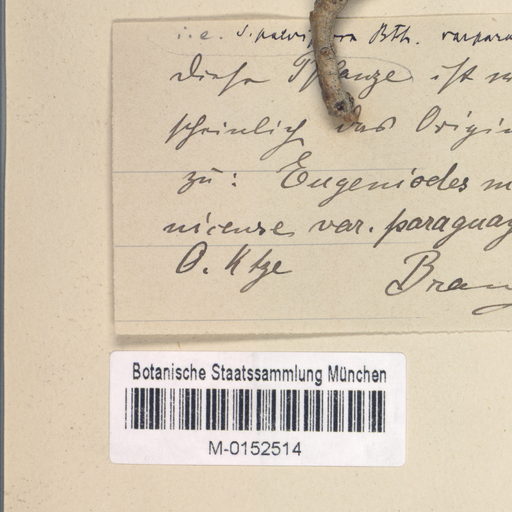 i.e. S. parviflora Bth. var para
Diese Pflanze ist w
scheinlich das Origin
zu: Eugeniodes m
nicense var. paraguay
O. Ktze
Bran
Botanische Staatssammlung München
M-0152514